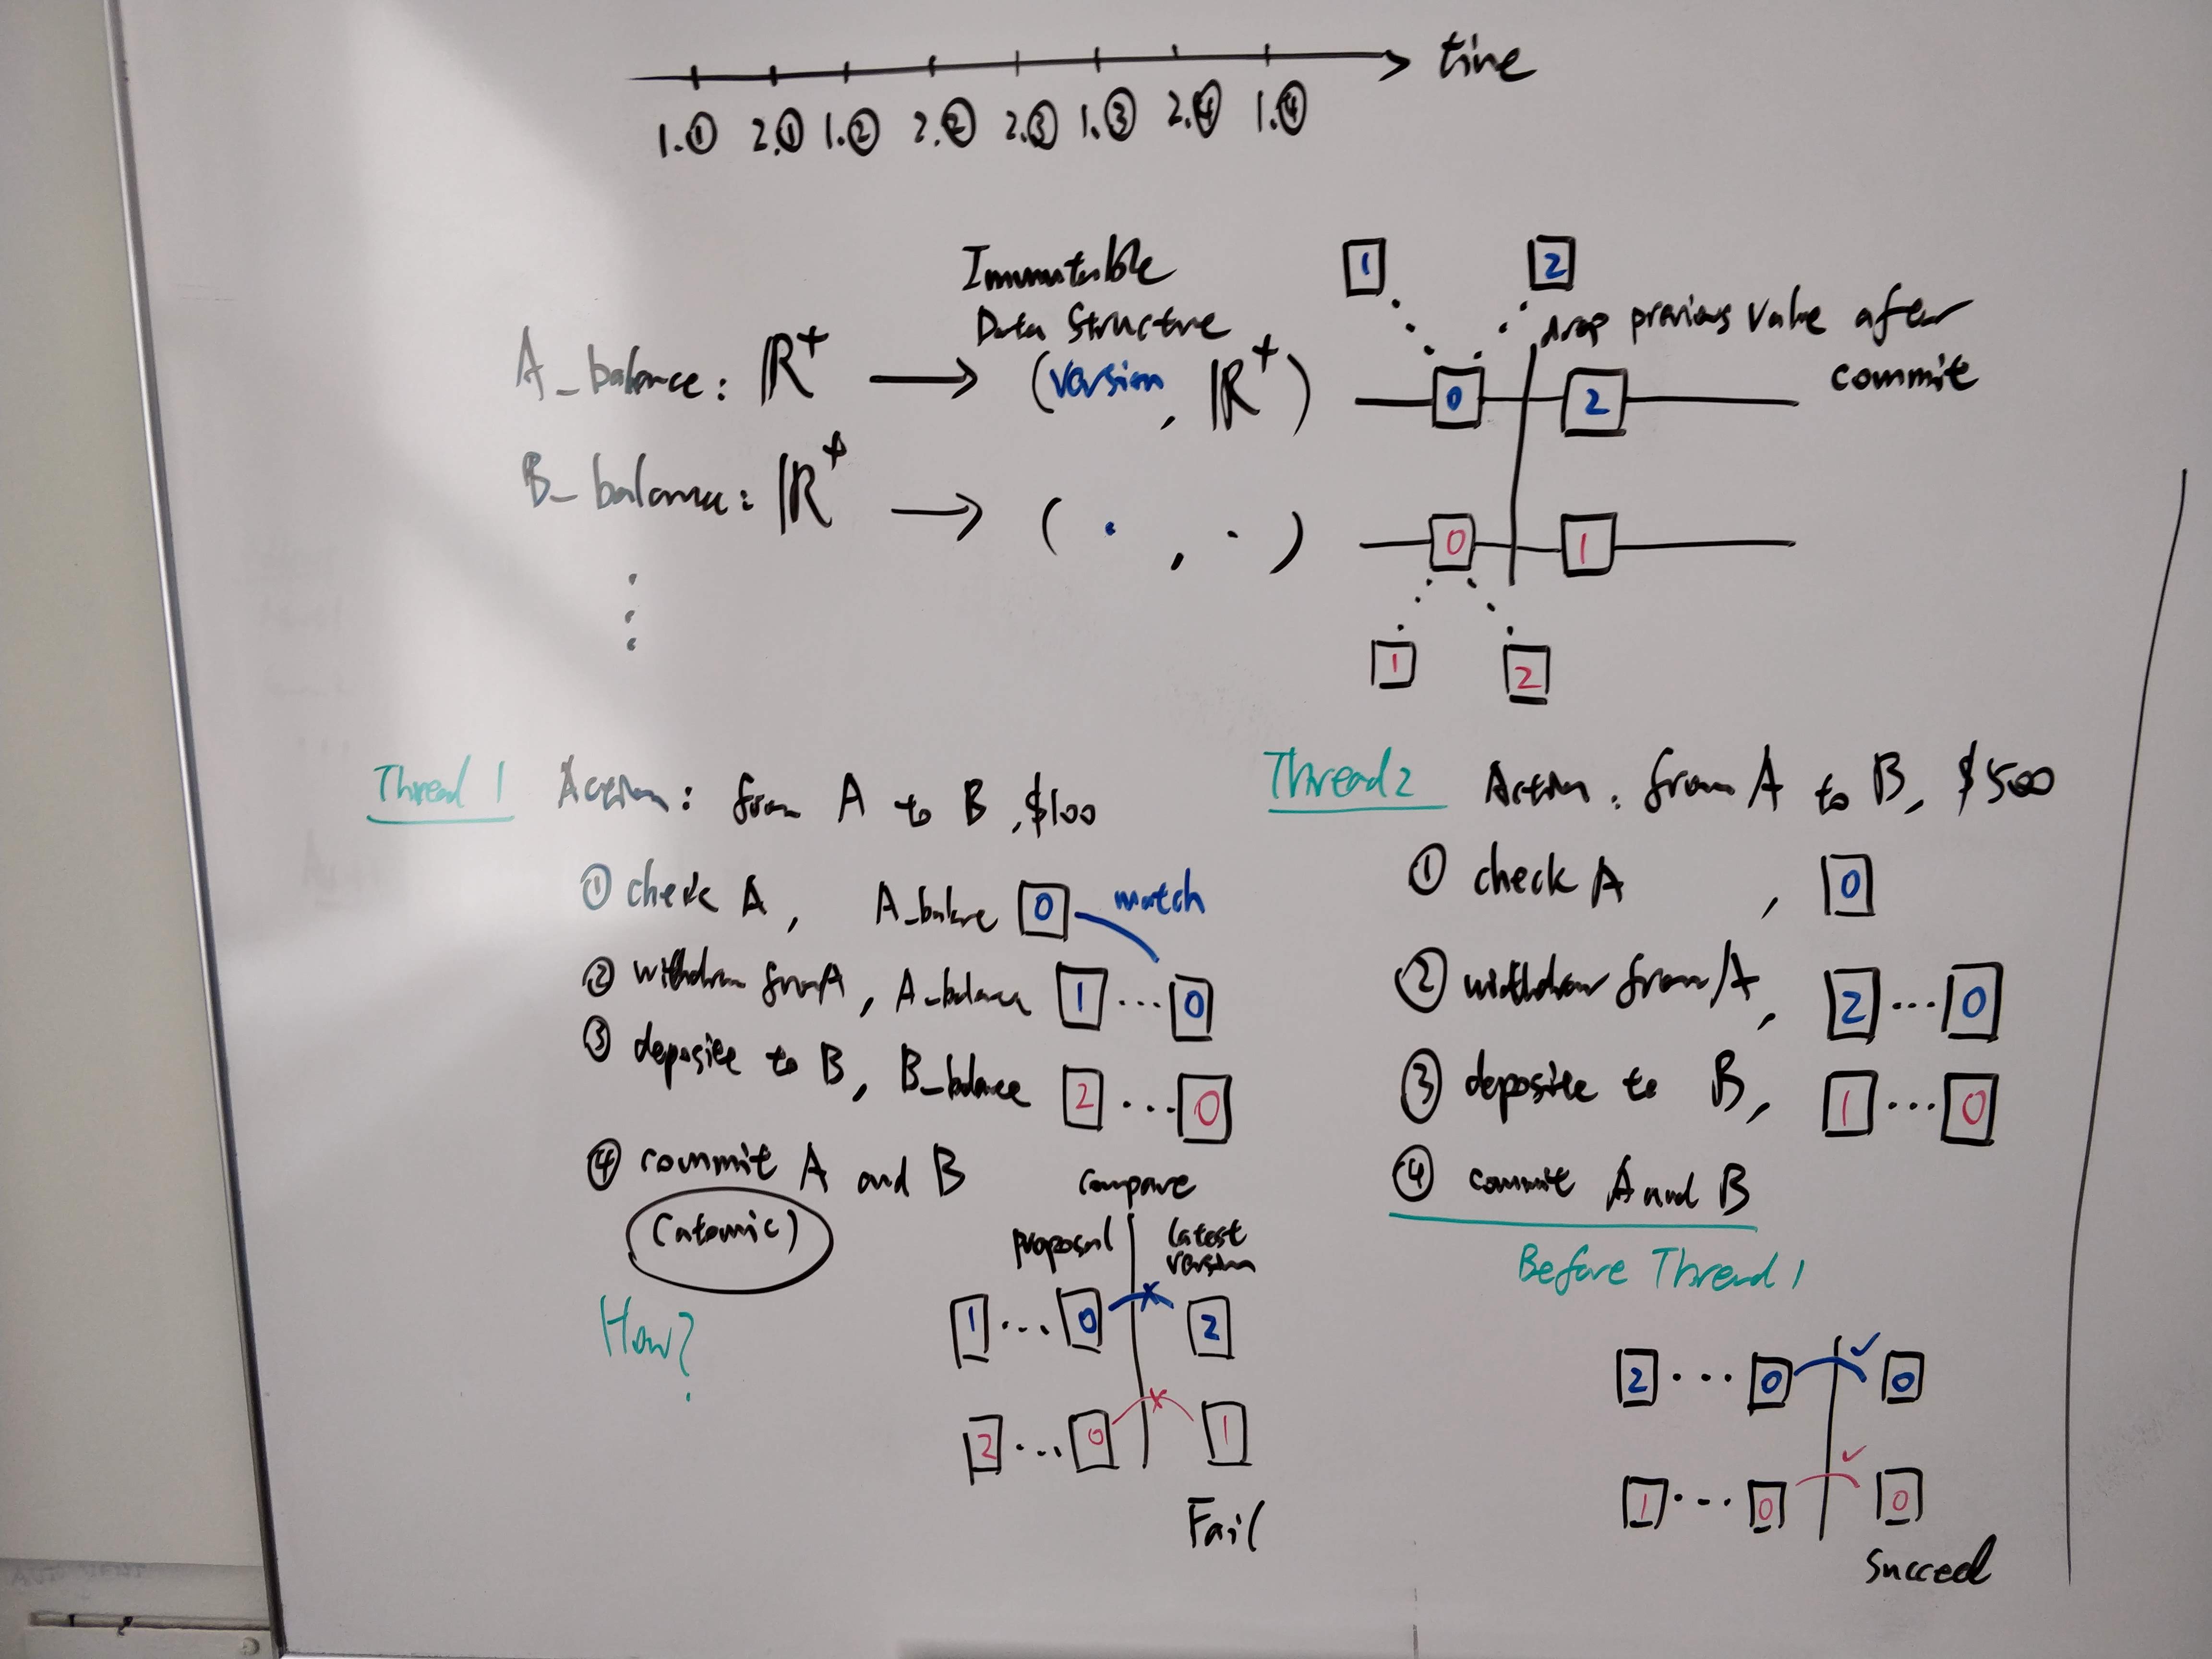 time
1.① 2.① 1.② 2.② 2.③ 1.③ 2.④ 1.④
Immutable
Data Structure
1 2
drop previous value after
commit
A_balance: ℝ⁺ → (version, ℝ⁺)
0 2
B_balance: ℝ⁺ → ( · , · )
0 1
1 2
Thread 1 Action: from A to B, $100
① check A, A_balance 0 match
② withdraw from A, A_balance 1 ... 0
③ deposite to B, B_balance 2 ... 0
④ commit A and B
(atomic)
How?
compare
proposal latest
version
1 ... 0 x 2
2 ... 0 x 1
Fail
Thread 2 Action: from A to B, $500
① check A , 0
② withdraw from A, 2 ... 0
③ deposite to B, 1 ... 0
④ commit A and B
Before Thread 1
2 ... 0 ✓ 0
1 ... 0 ✓ 0
Succeed